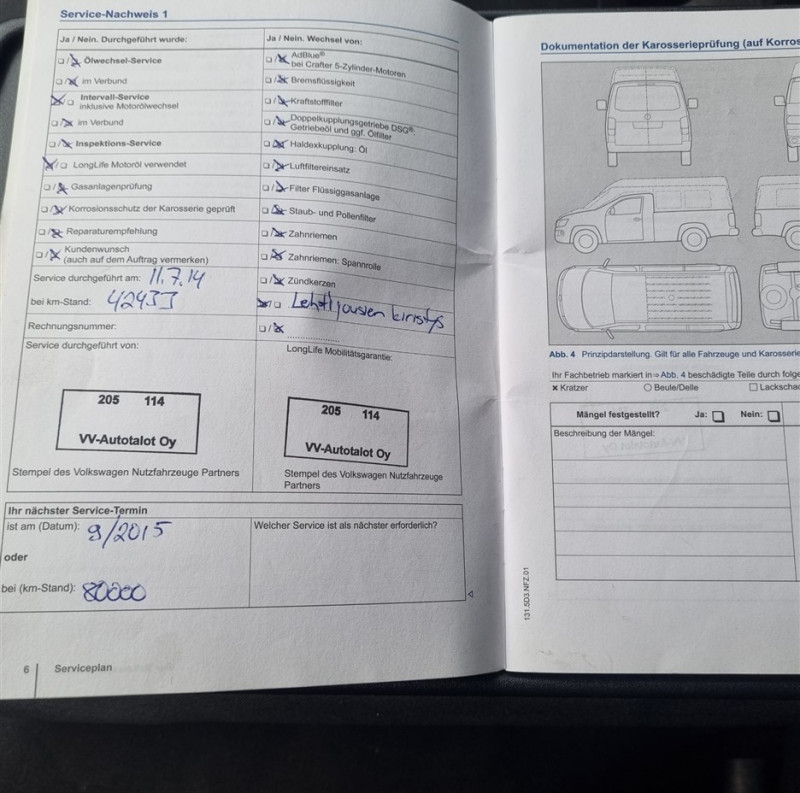 Service-Nachweis 1
Ja / Nein. Durchgeführt wurde:
Ölwechsel-Service
im Verbund
Intervall-Service
inklusive Motorölwechsel
im Verbund
Inspektions-Service
LongLife Motoröl verwendet
Gasanlagenprüfung
Korrosionsschutz der Karosserie geprüft
Reparaturempfehlung
Kundenwunsch
(auch auf dem Auftrag vermerken)
Service durchgeführt am: 11.7.14
bei km-Stand: 42433
Rechnungsnummer:
Service durchgeführt von:
205 114
VV-Autotalot Oy
Stempel des Volkswagen Nutzfahrzeuge Partners
Ja / Nein. Wechsel von:
AdBlue®
bei Crafter 5-Zylinder-Motoren
Bremsflüssigkeit
Kraftstofffilter
Doppelkupplungsgetriebe DSG®:
Getriebeöl und ggf. Ölfilter
Haldexkupplung: Öl
Luftfiltereinsatz
Filter Flüssiggasanlage
Staub- und Pollenfilter
Zahnriemen
Zahnriemen: Spannrolle
Zündkerzen
Lehtijousien kiristys
LongLife Mobilitätsgarantie:
205 114
VV-Autotalot Oy
Stempel des Volkswagen Nutzfahrzeuge
Partners
Ihr nächster Service-Termin
ist am (Datum): 9/2015
oder
bei (km-Stand): 80000
Welcher Service ist als nächster erforderlich?
6 Serviceplan
Dokumentation der Karosserieprüfung (auf Korros
Abb. 4 Prinzipdarstellung. Gilt für alle Fahrzeuge und Karosserie
Ihr Fachbetrieb markiert in ⇒ Abb. 4 beschädigte Teile durch folge
Kratzer Beule/Delle Lackschad
Mängel festgestellt? Ja: Nein:
Beschreibung der Mängel:
131.5D3.NFZ.01